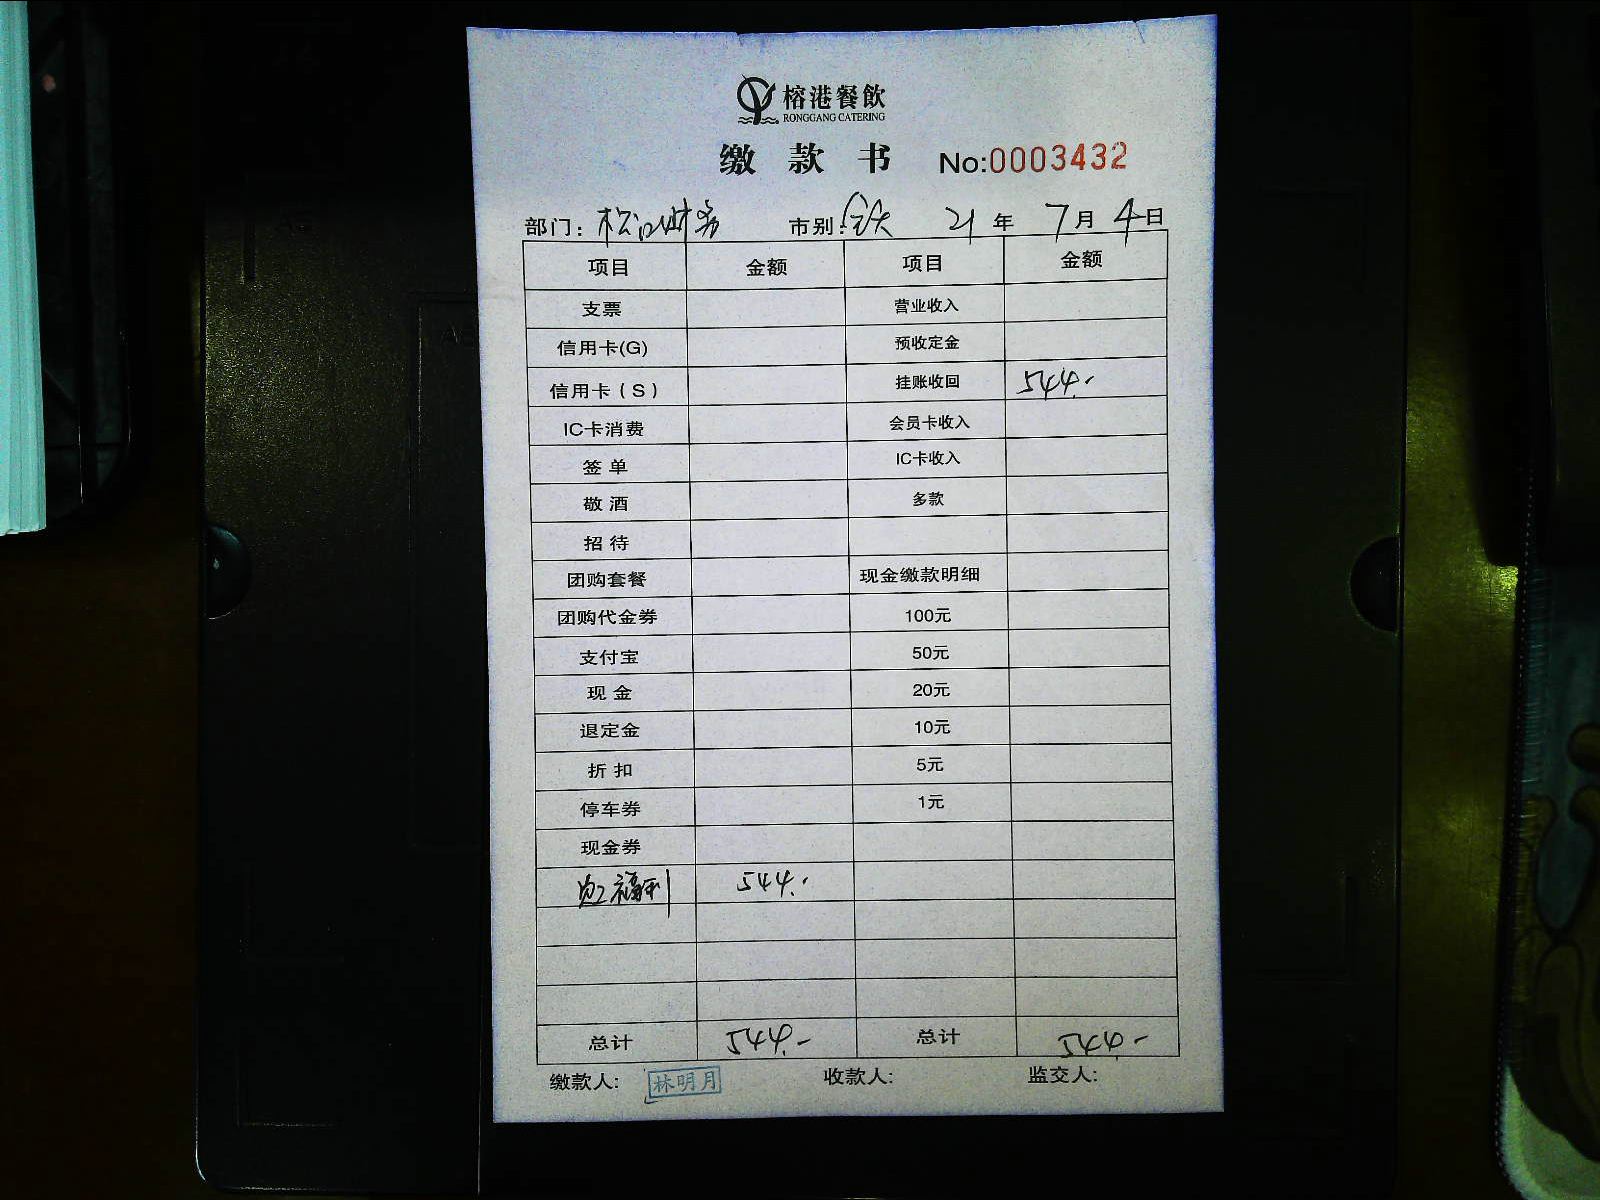 榕港餐飲
RONGGANG CATERING
缴款书 No:0003432
部门: 松江财务 市别: 全天 21年 7月 4日
项目 金额 项目 金额
支票 营业收入
信用卡(G) 预收定金
信用卡(S) 挂账收回 544.-
IC卡消费 会员卡收入
签单 IC卡收入
敬酒 多款
招待
团购套餐 现金缴款明细
团购代金券 100元
支付宝 50元
现金 20元
退定金 10元
折扣 5元
停车券 1元
现金券
员工福利 544.-
总计 544.- 总计 544.-
缴款人: 林明月 收款人: 监交人: